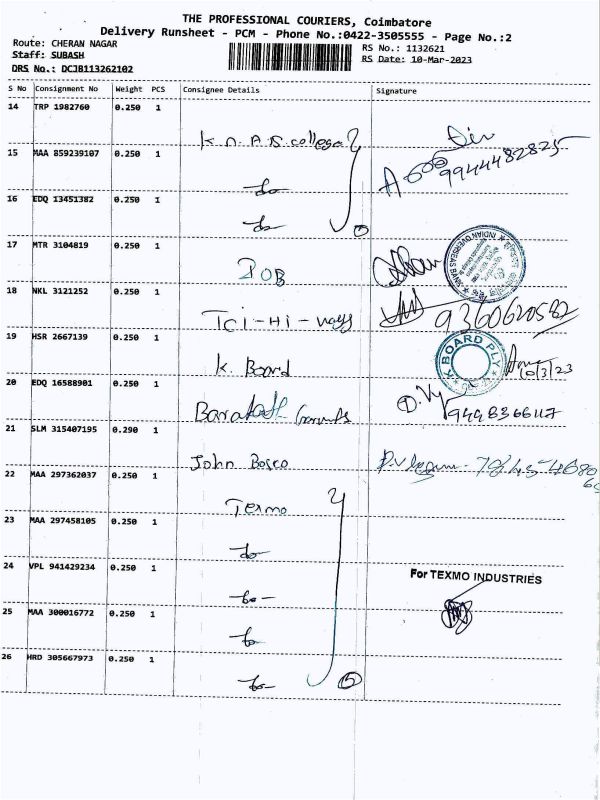 THE PROFESSIONAL COURIERS, Coimbatore
Delivery Runsheet - PCM - Phone No.:0422-3505555 - Page No.:2
Route: CHERAN NAGAR
RS No.: 1132621
Staff: SUBASH
RS Date: 10-Mar-2023
DRS No.: DCJB113262102
S No Consignment No Weight PCS Consignee Details Signature
14 TRP 1982760 0.250 1
K.n.A.S. college
15 MAA 859239107 0.250 1
9944482825
16 EDQ 13451382 0.250 1
17 MTR 3104819 0.250 1
IOB
INDIAN OVERSEAS BANK
18 NKL 3121252 0.250 1
TCi-Hi-ways 9360620582
19 HSR 2667139 0.250 1
K. Board
K BOARD PLY
10/3/23
20 EDQ 16588901 0.250 1
21 SLM 315407195 0.290 1
John Bosco
22 MAA 297362037 0.250 1
Texmo
23 MAA 297458105 0.250 1
24 VPL 941429234 0.250 1
For TEXMO INDUSTRIES
25 MAA 300016772 0.250 1
26 HRD 305667973 0.250 1
5